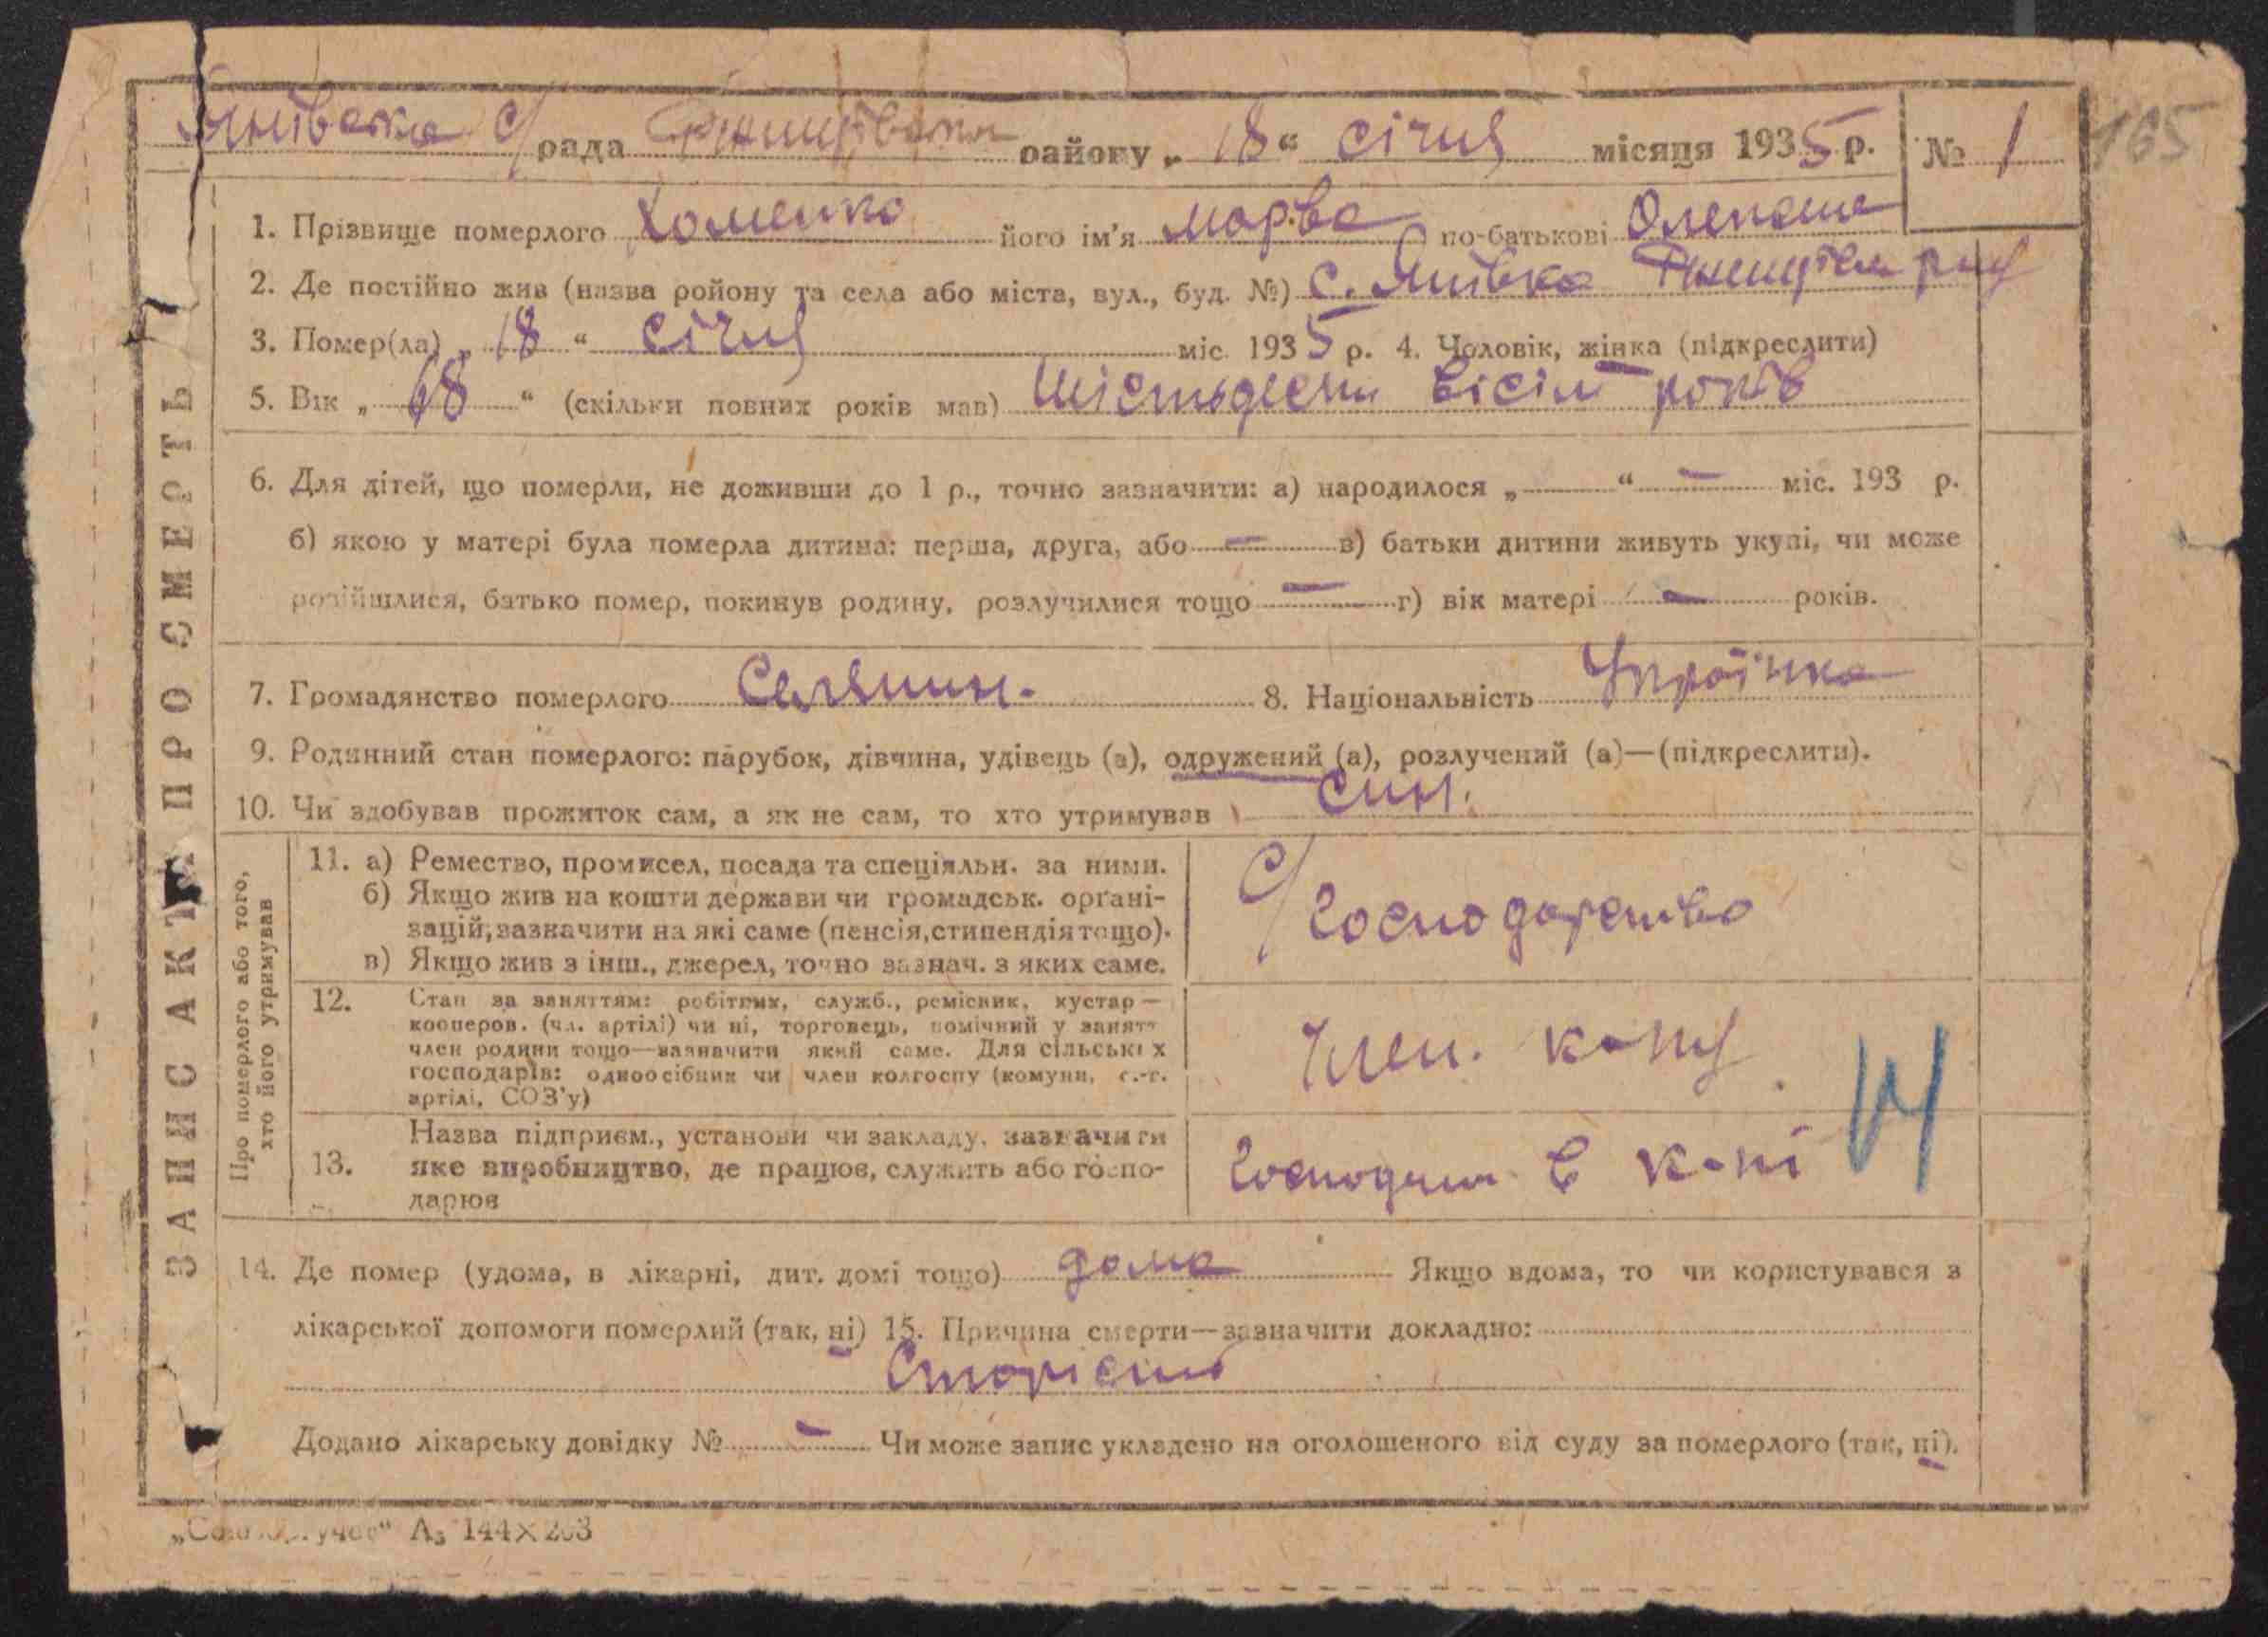 Янівська С/рада Ржищівського району „ 18 “ січня місяця 1935 р. № 1 165
1. Прізвище померлого Хоменко його ім’я Марва по-батькові
2. Де постійно жив (назва ройону та села або міста, вул., буд. №) с. Янівка
3. Помер(ла) „ 18 “ січня міс. 1935 р. 4. Чоловік, жінка (підкреслити)
5. Вік „ 68 “ (скільки повних років мав) шістьдесят вісім років
6. Для дітей, що померли, не доживши до 1 р., точно зазначити: а) народилося „ — “ — міс. 193 р.
б) якою у матері була померла дитина: перша, друга, або — в) батьки дитини живуть укупі, чи може
розійшлися, батько помер, покинув родину, розлучилися тощо — г) вік матері — років.
7. Громадянство померлого Селянин. 8. Національність Українка
9. Родинний стан померлого: парубок, дівчина, удівець (а), одружений (а), розлучений (а)—(підкреслити).
10. Чи здобував прожиток сам, а як не сам, то хто утримував син.
ЗАПИС АКТА ПРО СМЕРТЬ
Про померлого або того,
хто його утримував
11. а) Ремество, промисел, посада та спеціяльн. за ними.
б) Якщо жив на кошти держави чи громадськ. орґані-
зацій, зазначити на які саме (пенсія, стипендія тощо).
в) Якщо жив з інш., джерел, точно зазнач. з яких саме.
С/господарство
12. Стан за заняттям: робітник, служб., ремісник, кустар —
кооперов. (чл. артілі) чи ні, торговець, помічний у занятт
член родини тощо—зазначити який саме. Для сільських
господарів: одноосібник чи член колгоспу (комуни, с.-г.
артілі, СОЗ’у)
член. к-пу
13. Назва підприєм., установи чи закладу, зазначити
яке виробництво, де працює, служить або госпо-
дарює
в к-пі
14. Де помер (удома, в лікарні, дит. домі тощо) дома Якщо вдома, то чи користувався з
лікарської допомоги померлий (так, ні) 15. Причина смерти—зазначити докладно:
Старість
Додано лікарську довідку № — Чи може запис укладено на оголошеного від суду за померлого (так, ні).
А₅ 144×203